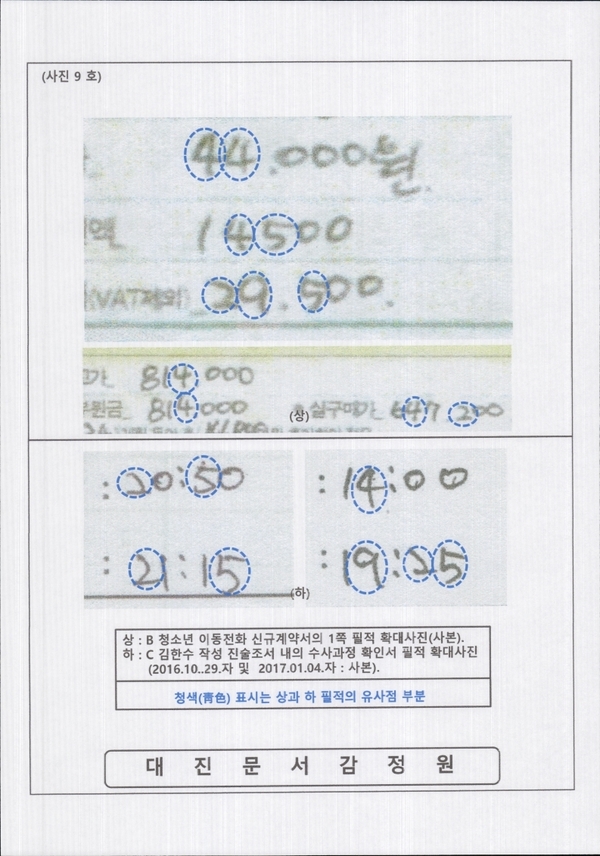 (사진 9 호)
44.000원.
액 14500
(VAT제외) 29.500.
가 814000
원금 814000
(상)
실구매가 647,200
: 20:50
: 14:00
: 21:15
: 19:25
(하)
상 : B 청소년 이동전화 신규계약서의 1쪽 필적 확대사진(사본).
하 : C 김한수 작성 진술조서 내의 수사과정 확인서 필적 확대사진
(2016.10..29.자 및 2017.01.04.자 : 사본).
청색(靑色) 표시는 상과 하 필적의 유사점 부분
대 진 문 서 감 정 원